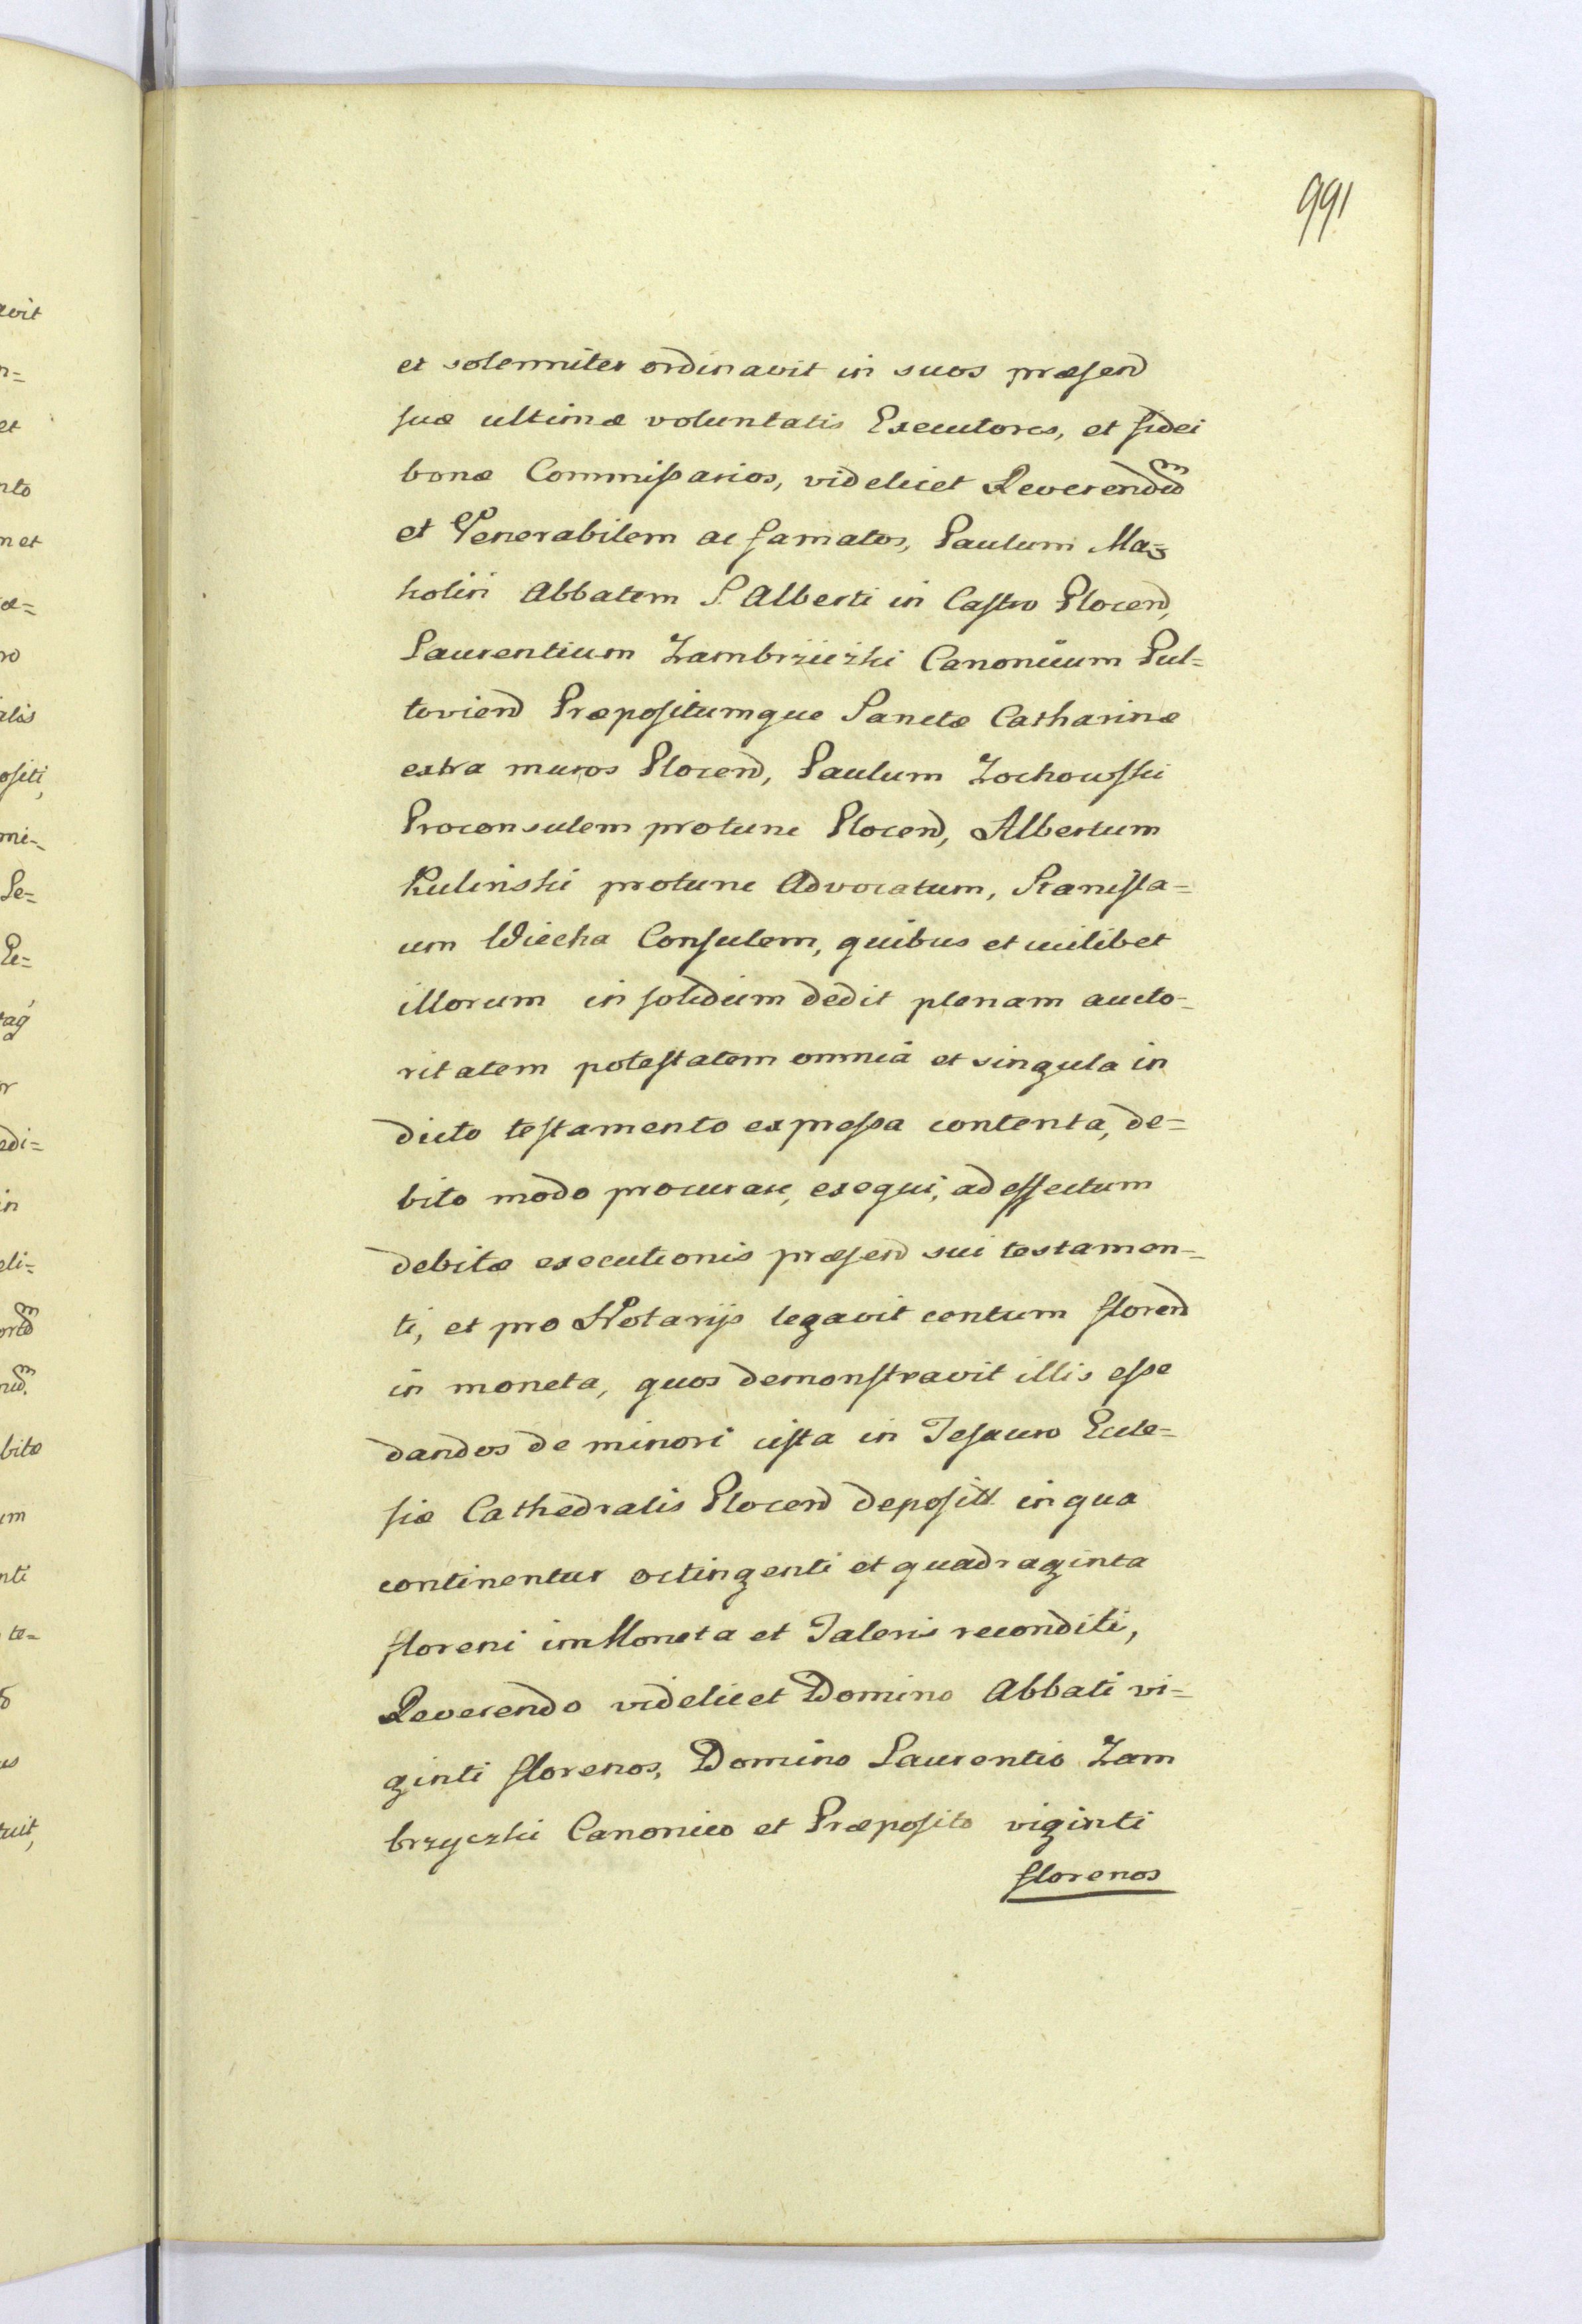 991
et solemniter ordinavit in suos præsen̄
suæ ultimæ voluntatis Executores, et fidei
bonæ Commissarios, videlicet Reverendum
et Venerabilem ac famatos, Paulum Ma=
kolin Abbatem S. Alberti in Castro Plocen̄,
Laurentium Zambrziczki Canonicum Pul=
tovien̄ Præpositumque Sanctæ Catharinæ
extra muros Plocen̄, Paulum Zochowski
Proconsulem protunc Plocen̄, Albertum
Kulinski protunc Advocatum, Stanisla=
um Wiecha Consulem, quibus et cuilibet
illorum in solidum dedit plenam aucto-
ritatem potestatem omnia et singula in
dicto testamento expressa contenta, de=
bito modo procurare, exequi, ad effectum
debitæ executionis præsen̄ sui testamen-
ti, et pro Notarijs legavit centum floren̄
in moneta, quos demonstravit illis esse
dandos de minori cista in Tesauro Eccle=
siæ Cathedralis Plocen̄ deposit. in qua
continentur octingenti et quadraginta
floreni in Moneta et Taleris reconditi,
Reverendo videlicet Domino Abbati vi=
ginti florenos, Domino Laurentio Zam
brzyczki Canonico et Præposito viginti
florenos